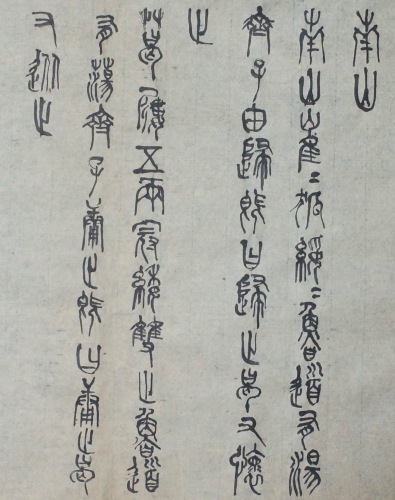 南山
南山崔=綏=魯道有湯
齊子由歸既曰歸止曷又懷
止
葛屨五兩冠緌雙止魯道
有蕩齊子庸止既曰庸止曷
又從止